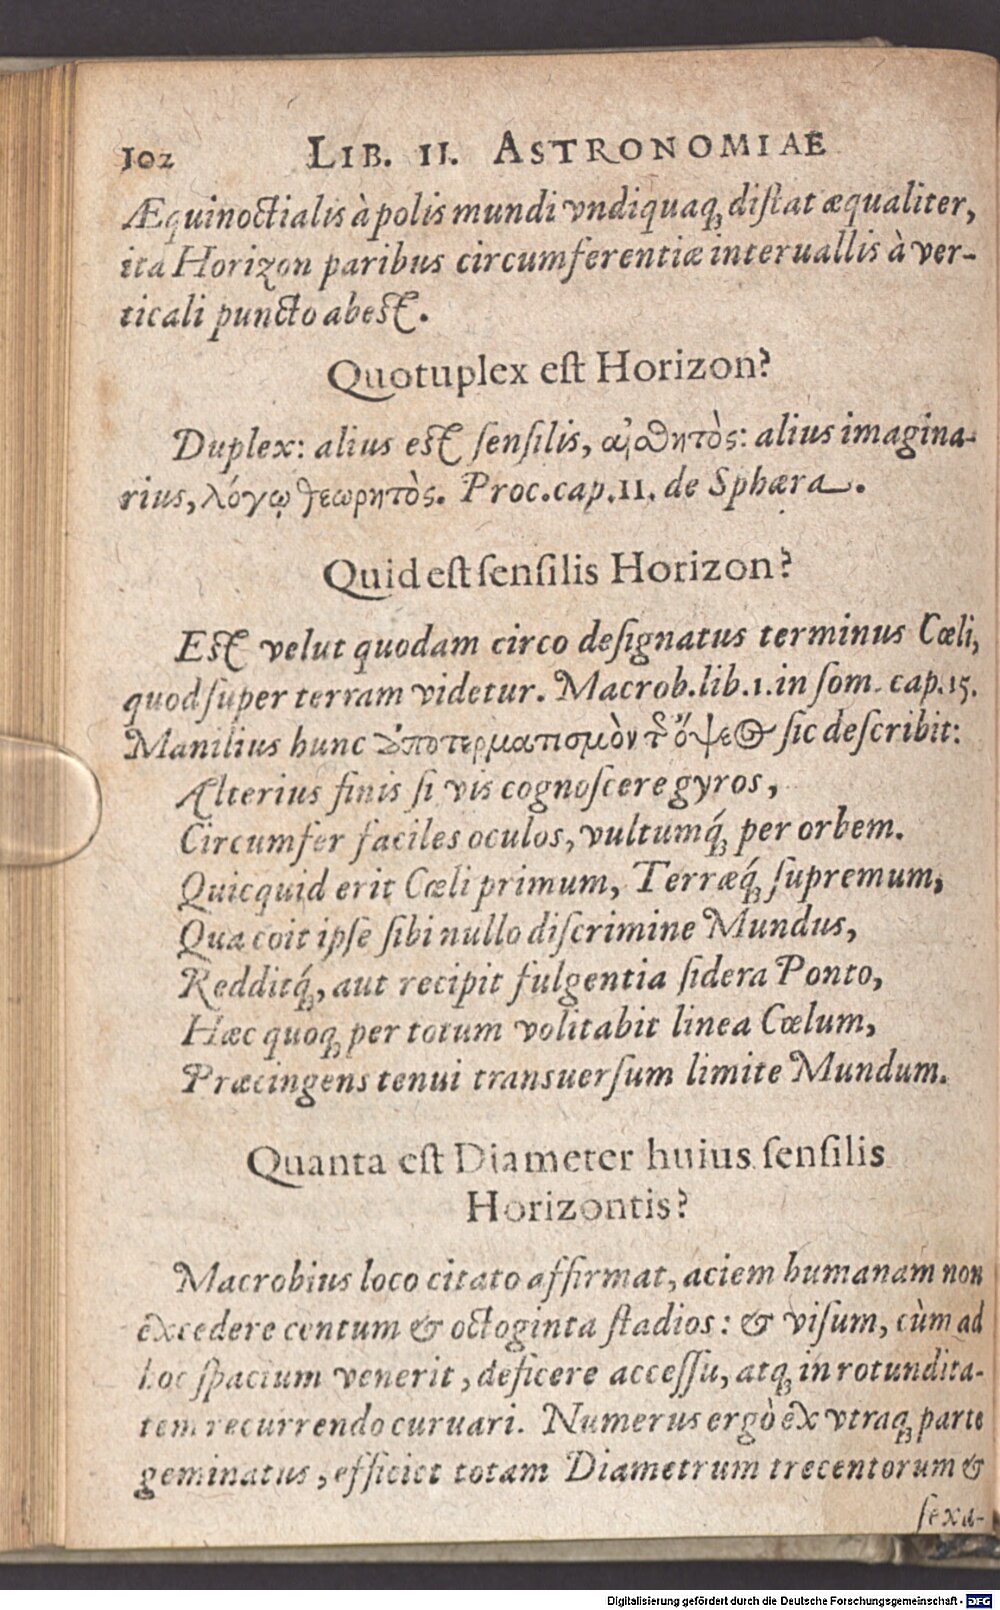 102 LIB. II. ASTRONOMIAE
Æquinoctialis à polis mundi vndiquaq; distat æqualiter,
ita Horizon paribus circumferentiæ interuallis à ver-
ticali puncto abest.
Quotuplex est Horizon?
Duplex: alius est sensilis, αἰσθητὸς: alius imagina-
rius, λόγῳ θεωρητὸς. Proc. cap. 11. de Sphæra.
Quid est sensilis Horizon?
Est velut quodam circo designatus terminus Cœli,
quod super terram videtur. Macrob. lib. 1. in som. cap. 15.
Manilius hunc ἀποτερματισμὸν τ͂ ὄψεως sic describit:
Alterius finis si vis cognoscere gyros,
Circumfer faciles oculos, vultumq́; per orbem.
Quicquid erit Cœli primum, Terræq́; supremum,
Qua coit ipse sibi nullo discrimine Mundus,
Redditq́;, aut recipit fulgentia sidera Ponto,
Hæc quoq; per totum volitabit linea Cœlum,
Præcingens tenui transuersum limite Mundum.
Quanta est Diameter huius sensilis
Horizontis?
Macrobius loco citato affirmat, aciem humanam non
excedere centum & octoginta stadios: & visum, cùm ad
hoc spacium venerit, deficere accessu, atq; in rotundita-
tem recurrendo curuari. Numerus ergò ex vtraq; parte
geminatus, efficiet totam Diametrum trecentorum &
sexa-
Digitalisierung gefördert durch die Deutsche Forschungsgemeinschaft - DFG